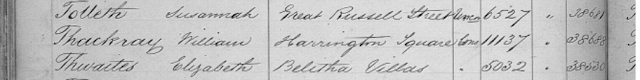 Tolleth Susannah Great Russell Street 6527 "
Thackray William Harrington Square 11137 " 38688
Thwaites Elizabeth Belitha Villas " 5032 "